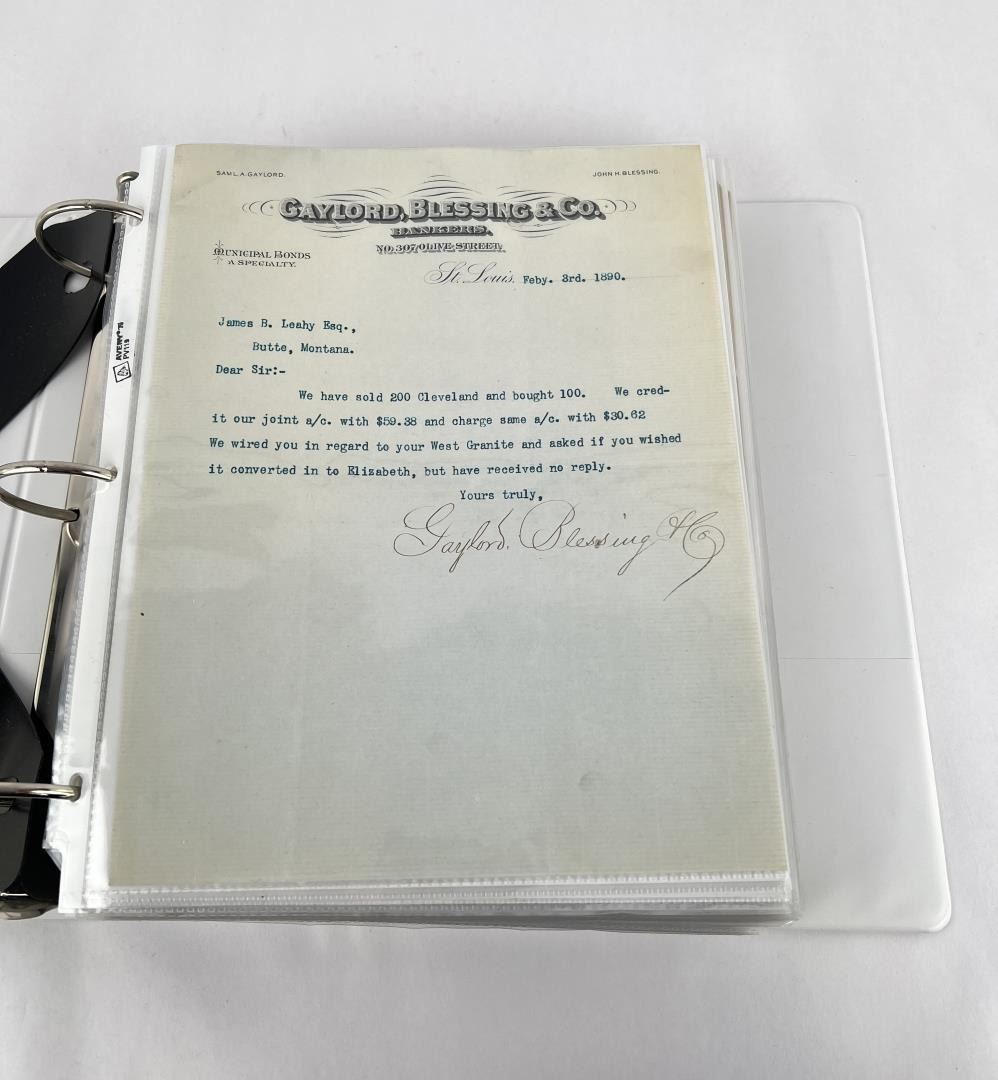 SAML. A. GAYLORD.
JOHN H. BLESSING.
GAYLORD, BLESSING & CO.
BANKERS.
NO. 307 OLIVE STREET.
MUNICIPAL BONDS
A SPECIALTY.
St. Louis, Feby. 3rd. 1890.
James B. Leahy Esq.,
Butte, Montana.
Dear Sir:-
We have sold 200 Cleveland and bought 100. We cred-
it our joint a/c. with $59.38 and charge same a/c. with $30.62
We wired you in regard to your West Granite and asked if you wished
it converted in to Elizabeth, but have received no reply.
Yours truly,
Gaylord, Blessing & Co
AVERY® 76
PV119